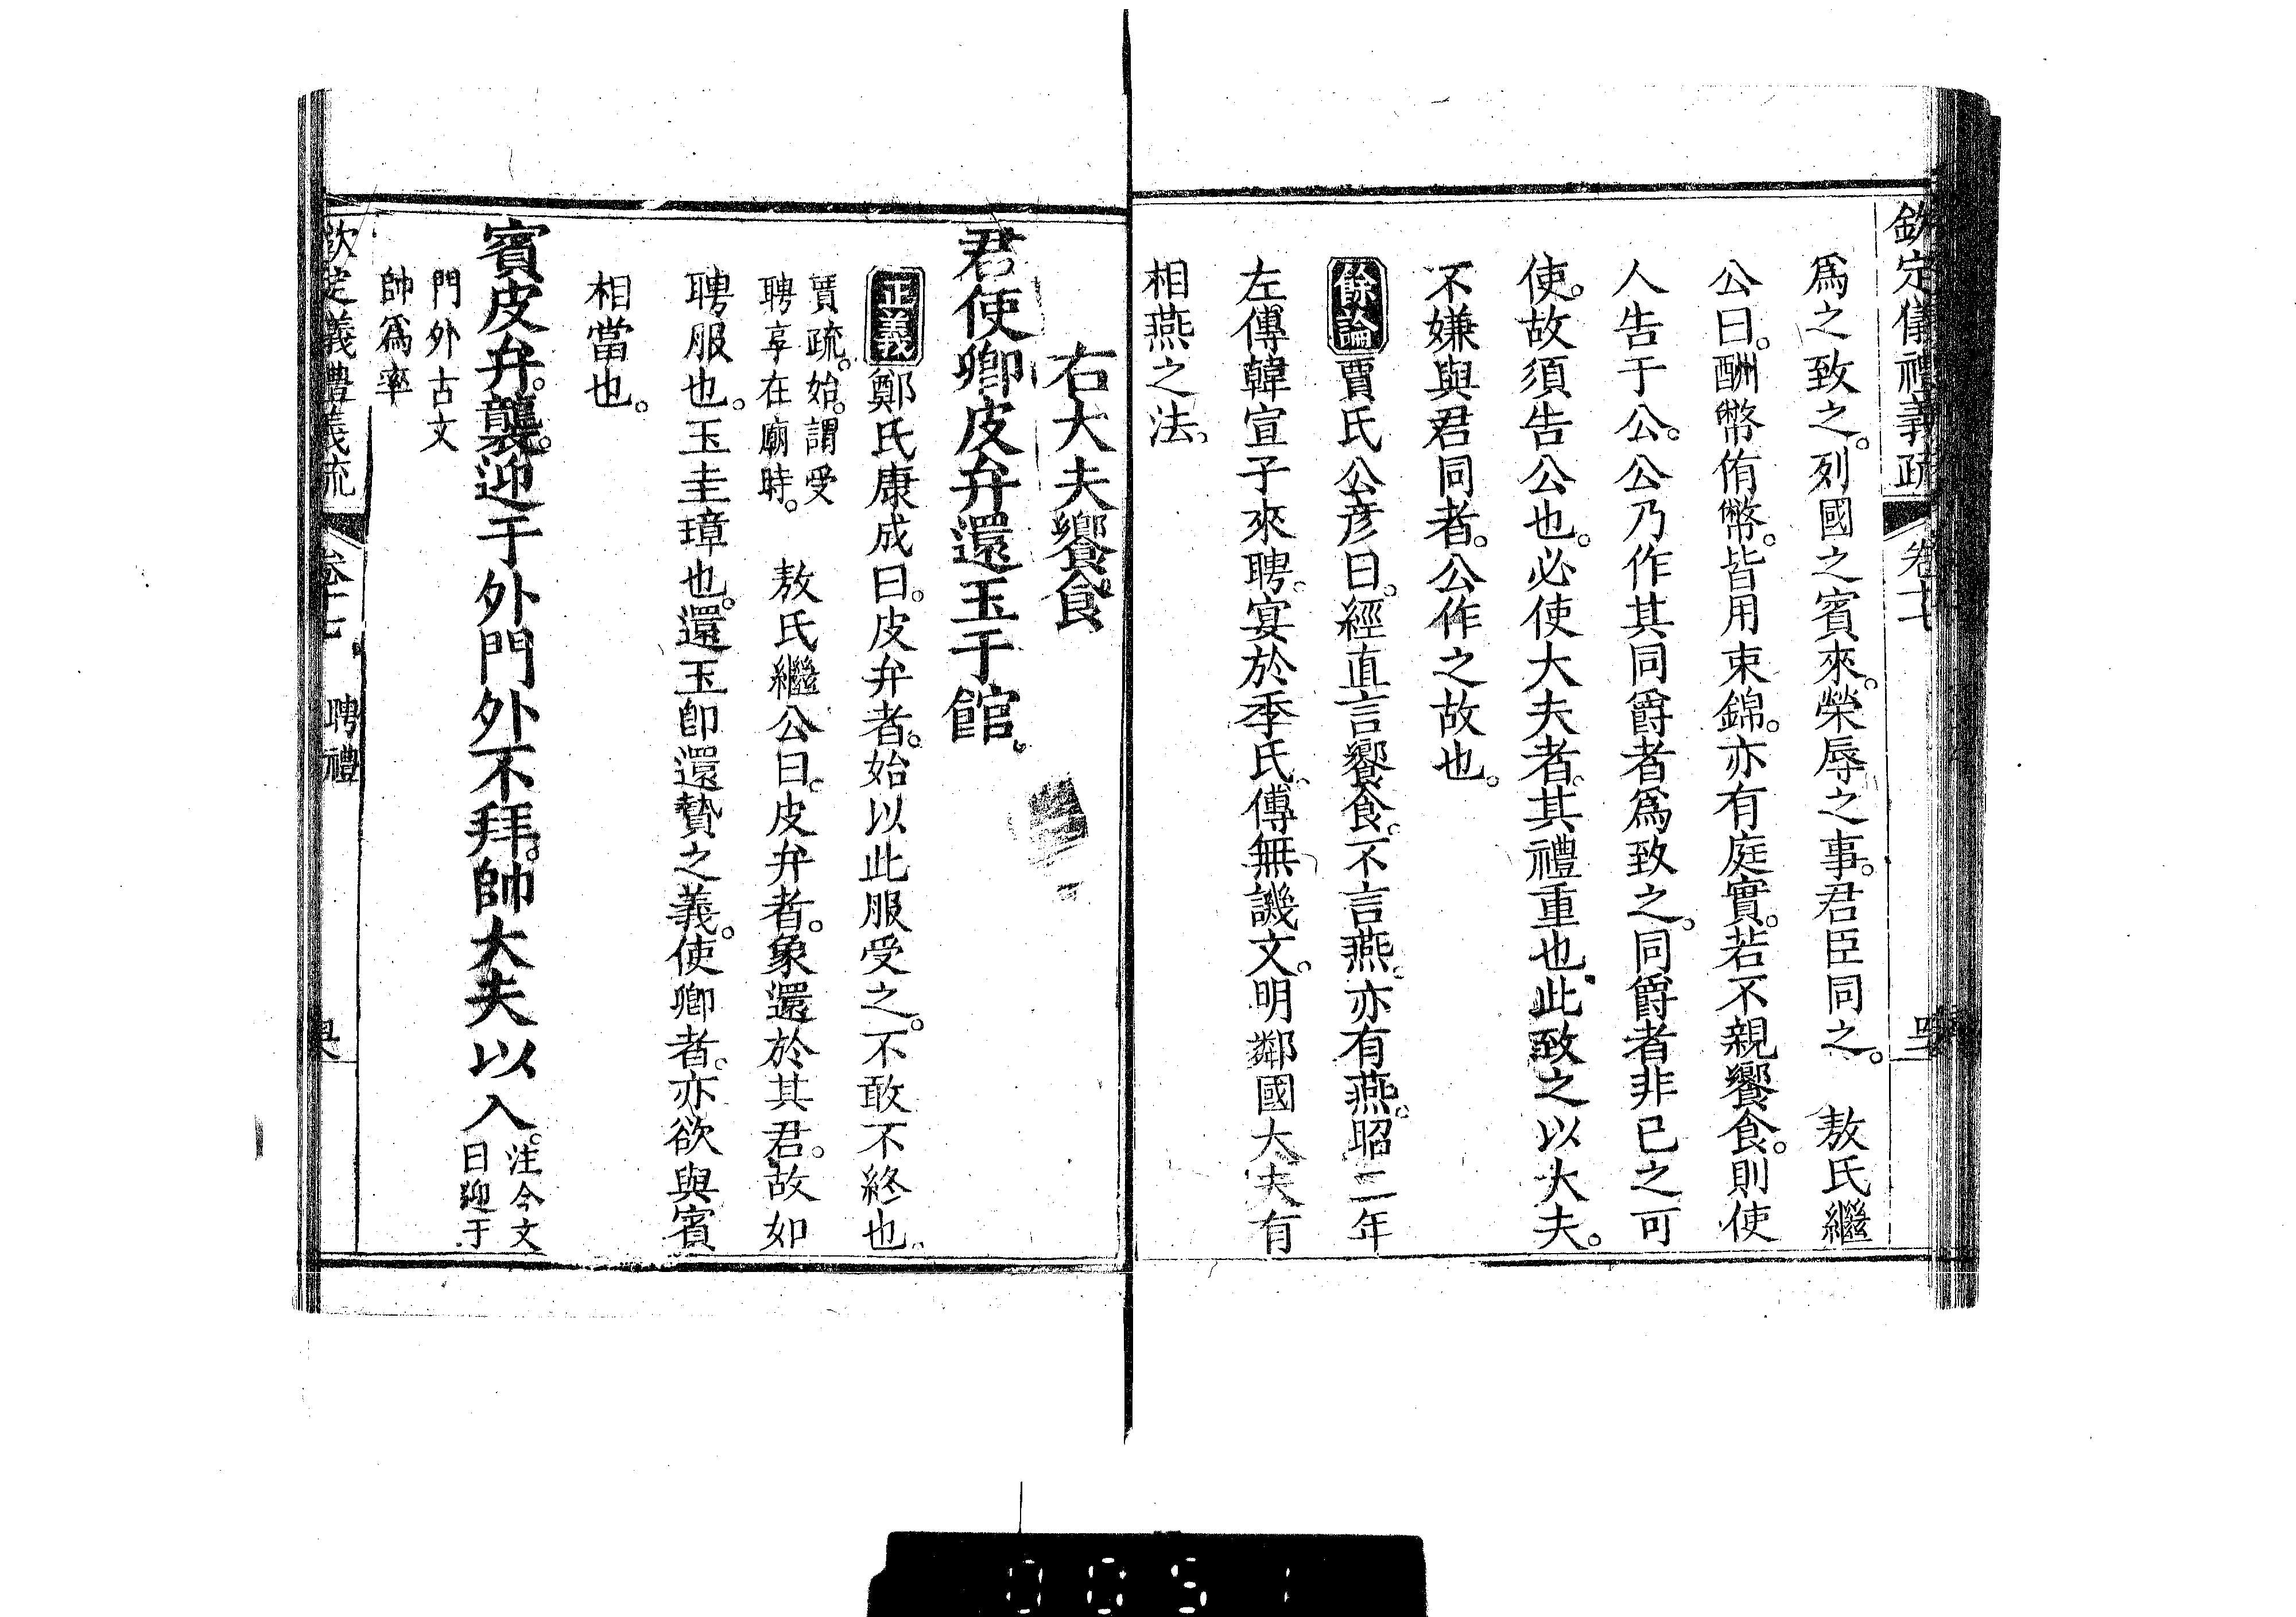 欽定儀禮義疏 卷十七
爲之致之。列國之賓來。榮辱之事。君臣同之。 敖氏繼
公曰。酬幣侑幣。皆用束錦。亦有庭實。若不親饗食。則使
人告于公。公乃作其同爵者爲致之。同爵者非已之可
使。故須告公也。必使大夫者。其禮重也。此致之以大夫。
不嫌與君同者。公作之故也。
餘論賈氏公彦曰。經直言饗食。不言燕。亦有燕。昭二年
左傳韓宣子來聘。宴於季氏。傳無譏文。明鄰國大夫有
相燕之法。
右大夫饗食
君使卿皮弁還玉于館。
正義鄭氏康成曰。皮弁者。始以此服受之。不敢不終也。
賈疏。始。謂受
聘享在廟時。 敖氏繼公曰。皮弁者。象還於其君。故如
聘服也。玉圭璋也。還玉卽還贄之義。使卿者。亦欲與賓
相當也。
賓皮弁。襲。迎于外門外不拜。帥大夫以入。注今文
曰迎于
門外古文
帥爲率
欽定義禮義疏 卷十七 聘禮
0051